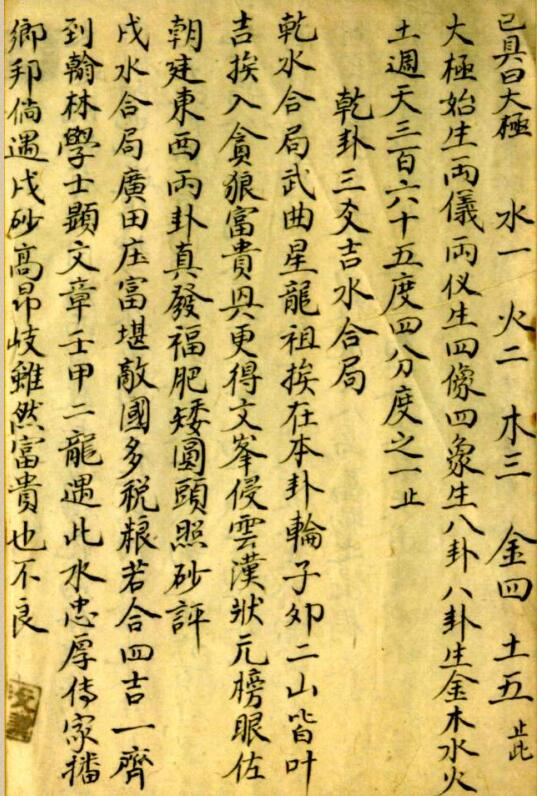 已具曰大極 水一 火二 木三 金四 土五 止此
大極始生両儀両仪生四像四象生八卦八卦生金木水火
土週天三百六十五度四分度之一止
乾卦三爻吉水合局
乾水合局武曲星龍祖挨在本卦輪子夘二山皆叶
吉挨入貪狼富貴具更得文峯侵雲漢狀元榜眼佐
朝廷東西両卦真發福肥矮圓頭照砂評
戌水合局廣田庄富堪敵國多税粮若合四吉一齊
到翰林學士顕文章壬甲二龍遇此水忠厚傳家播
鄉邦倘遇戌砂高昂歧雖然富貴也不良